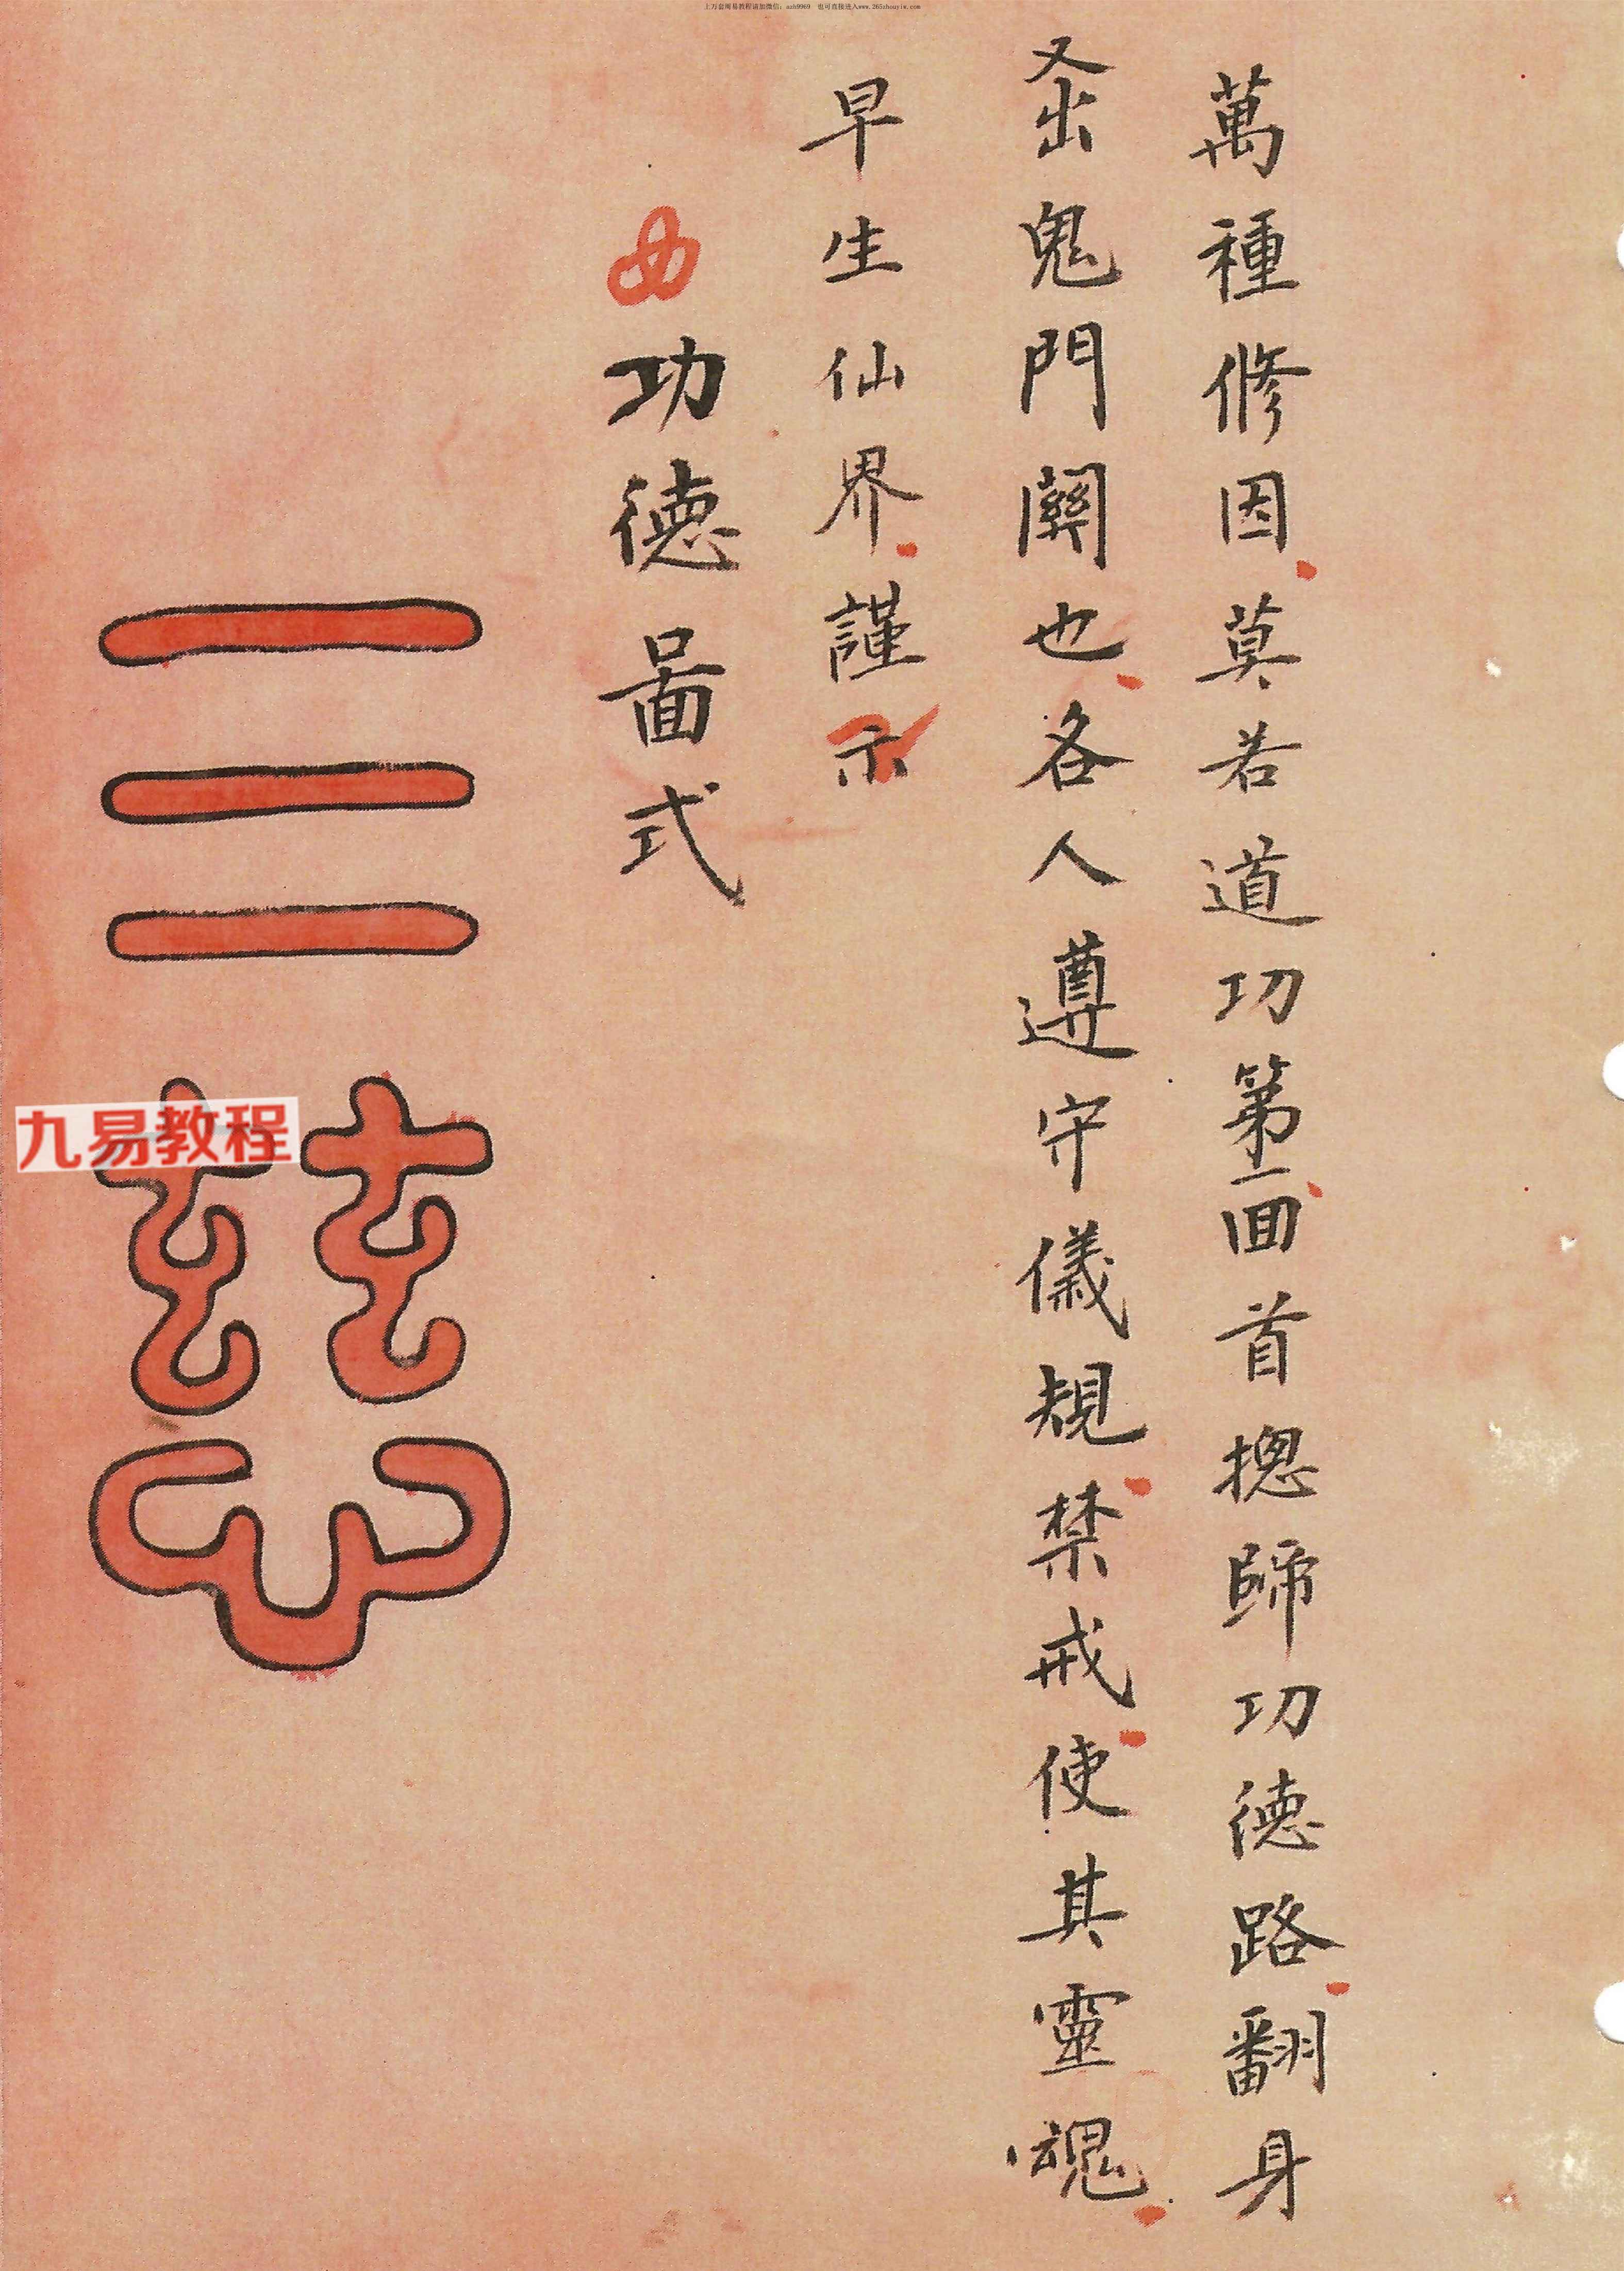 上万套周易教程请加微信：azh9969 也可直接进入www.265zhouyiw.com
萬種修因莫若道功第一回首摠歸功德路翻身
出鬼門關也各人遵守儀規禁戒使其靈魂
早生仙界謹示
功德啚式
九易教程